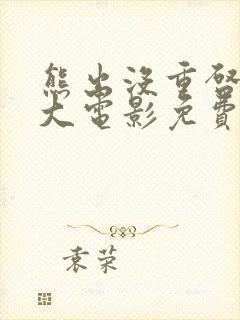 熊出没重启
大电影免费
袁荣